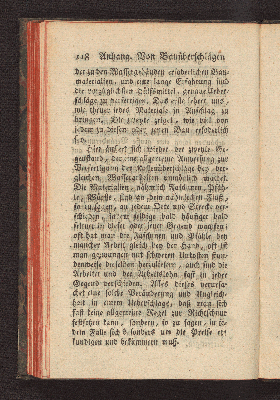 118 Anhang. Von Bauüberschlägen
der zu den Wassergebäuden erforderlichen Bau-
materialien, und eine lange Erfahrung sind
die vorzüglichsten Hülfsmittel, genaue Ueber-
schläge zu verfertigen. Das erste lehret uns,
wie theuer jedes Materiale in Anschlag zu
bringen. Die zweyte zeiget, wie viel von
jedem zu diesem oder jenem Bau erforderlich
ist.
Hier äussert sich wieder der zweyte Ge-
genstand, der eine allgemeine Anweisung zur
Verfertigung der Kostenüberschläge bey der-
gleichen Wasserarbeiten unmöglich macht.
Die Materialien, nähmlich Faschinen, Pfäh-
le, Würste, sind an dem nähmlichen Fluß,
so zu sagen, an jedem Orte und Strecke ver-
schieden, indem selbige bald häufiger bald
seltener in dieser oder jener Gegend wachsen;
oft hat man die Faschinen und Pfähle bey
mancher Arbeit gleich bey der Hand, oft ist
man gezwungen mit schweren Unkosten stun-
denweise dieselben herzuliefern, auch sind die
Arbeiter und der Arbeitslohn fast in jeder
Gegend verschieden. Alles dieses verursa-
chet eine solche Veränderung und Ungleich-
heit in einem Ueberschlage, daß man sich
fast keine allgemeine Regel zur Richtschnur
festsetzen kann, sondern, so zu sagen, in je-
dem Falle sich besonders um die Preise er-
kundigen und bekümmern muß.